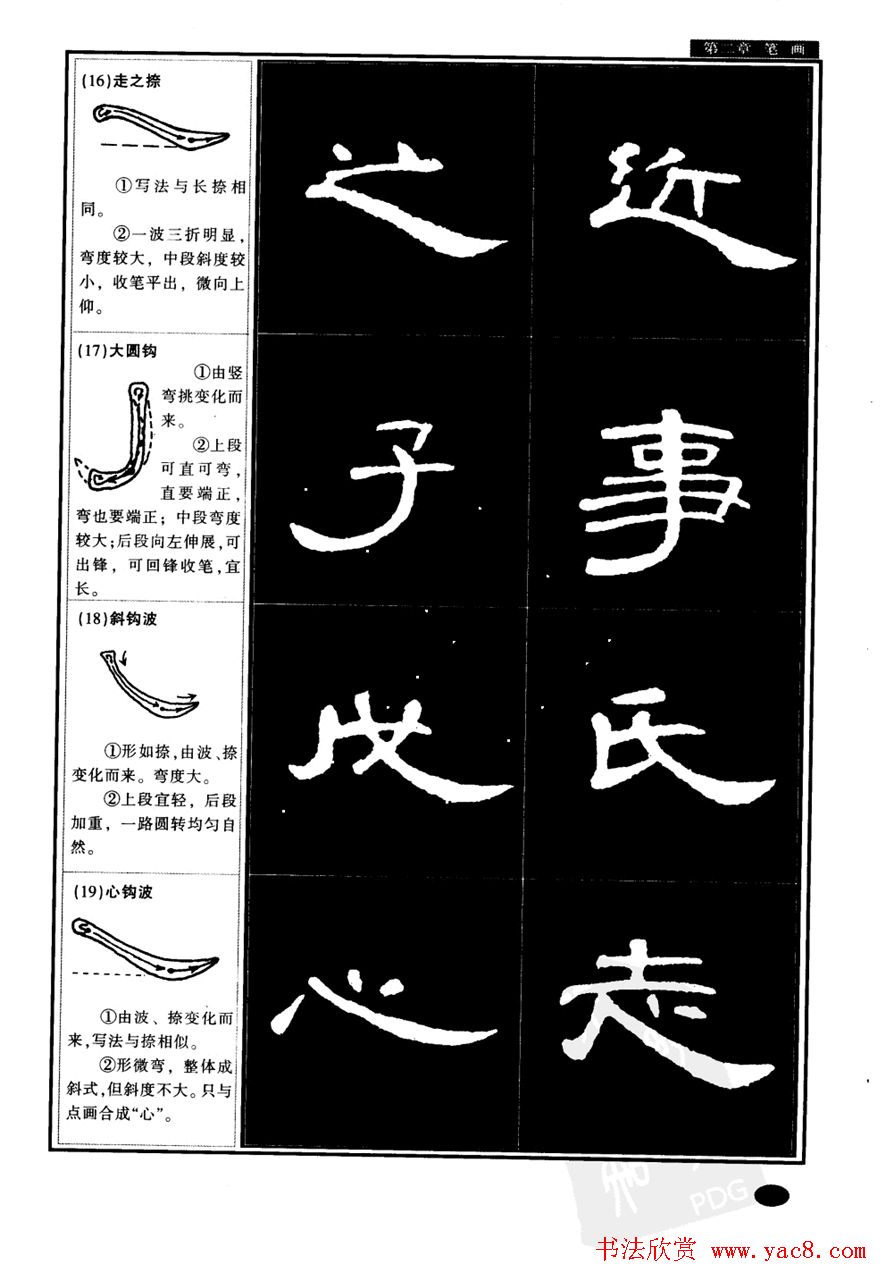 第二章 笔画
(16)走之捺
①写法与长捺相
同。
②一波三折明显，
弯度较大，中段斜度较
小，收笔平出，微向上
仰。
之 近
(17)大圆钩
①由竖
弯挑变化而
来。
②上段
可直可弯，
直要端正，
弯也要端正；中段弯度
较大；后段向左伸展，可
出锋，可回锋收笔，宜
长。
子 事
(18)斜钩波
①形如捺，由波、捺
变化而来。弯度大。
②上段宜轻，后段
加重，一路圆转均匀自
然。
氏
(19)心钩波
①由波、捺变化而
来，写法与捺相似。
②形微弯，整体成
斜式，但斜度不大。只与
点画合成“心”。
心 走
PDG
书法欣赏 www.yac8.com